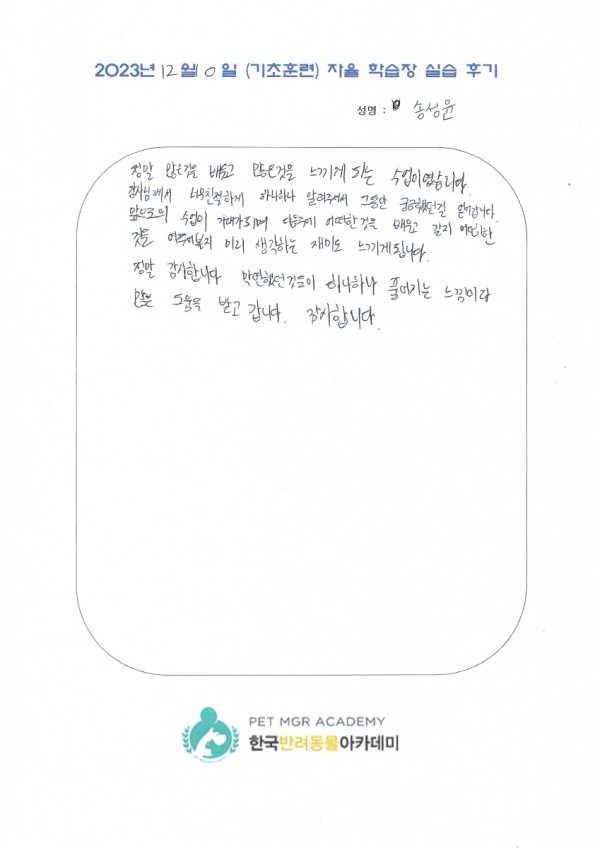 2023년 12월 10일 (기초훈련) 자율 학습장 실습 후기
성명 : 송성윤
정말 많은것을 배우고 많은것을 느끼게 되는 수업이였습니다.
강사님께서 너무친절하게 하나하나 알려주셔서 그동안 궁금했던걸
앞으로의 수업이 기대가되며 다음주에 어떠한것을 배우고 같지 어떠한
것을 여쭈어볼지 미리 생각하는 재미도 느끼게됩니다.
정말 감사합니다 막연했던것들이 하나하나 풀어지는 느낌이라
많은 도움을 받고 갑니다. 감사합니다.
PET MGR ACADEMY
한국반려동물아카데미